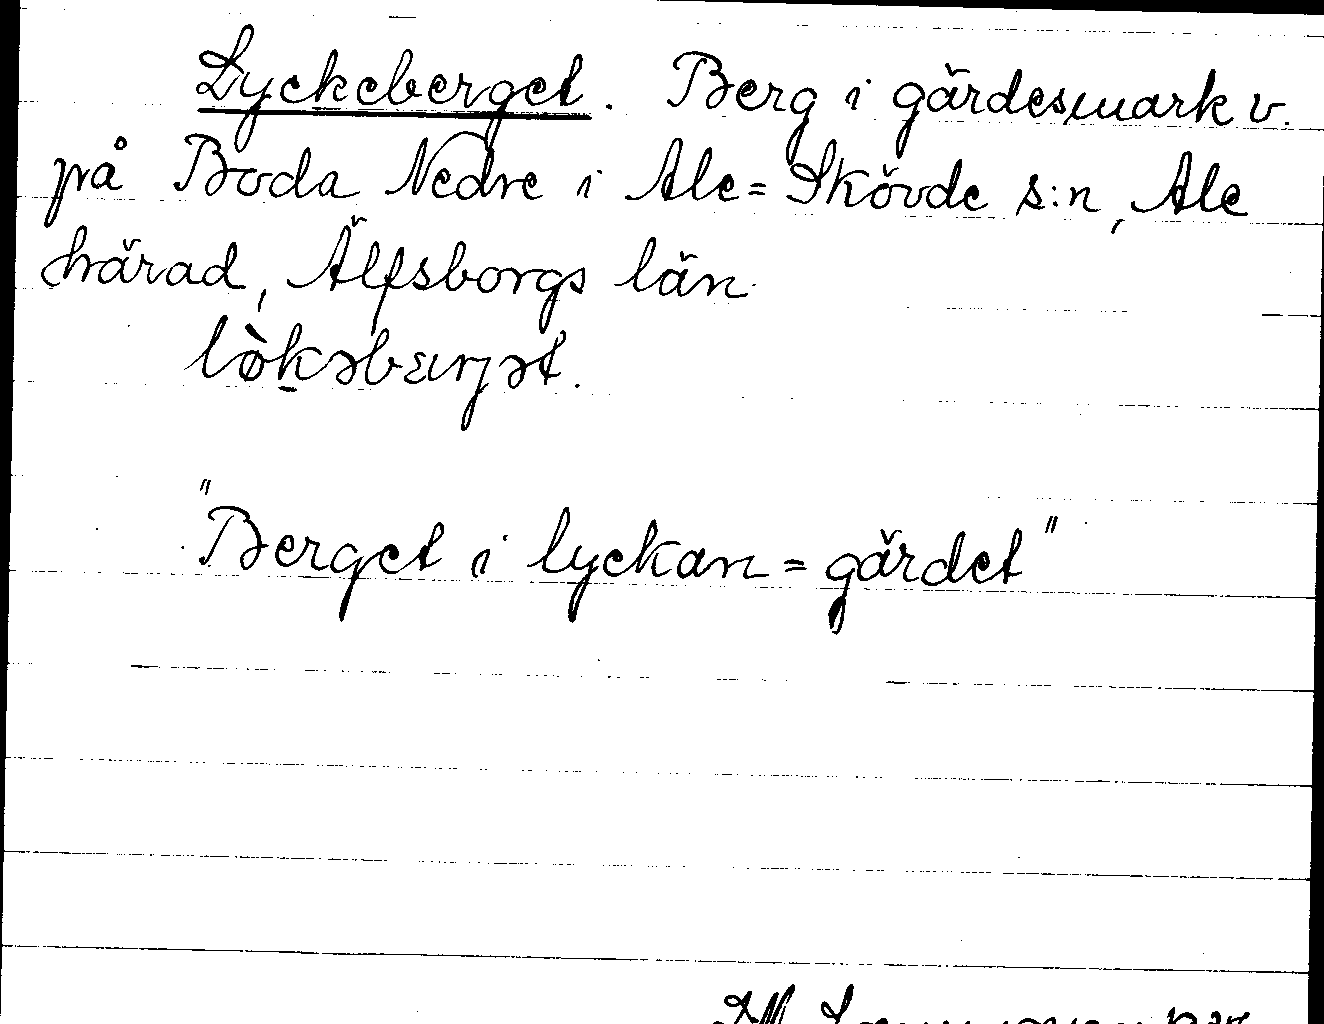 Lyckeberget. Berg i gärdesmark v.
på Boda Nedre i Ale=Skövde s:n, Ale
härad, Älfsborgs län
lø̀kəbærjət.
"Berget i lyckan = gärdet"